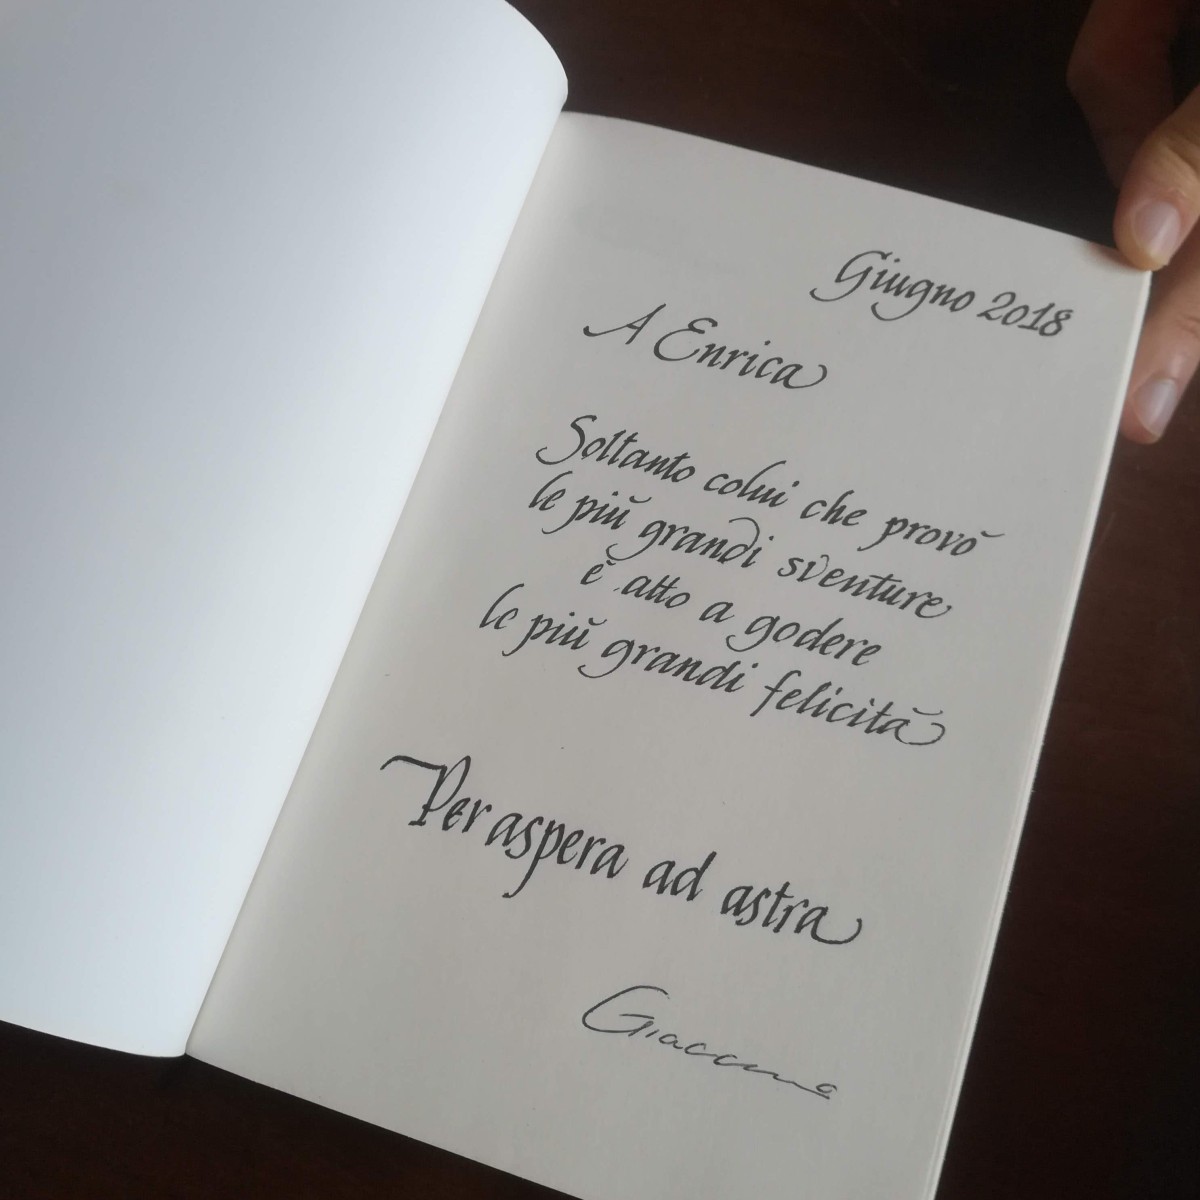 Giugno 2018
A Enrica
Soltanto colui che provò
le più grandi sventure
è atto a godere
le più grandi felicità
Per aspera ad astra
Giacomo